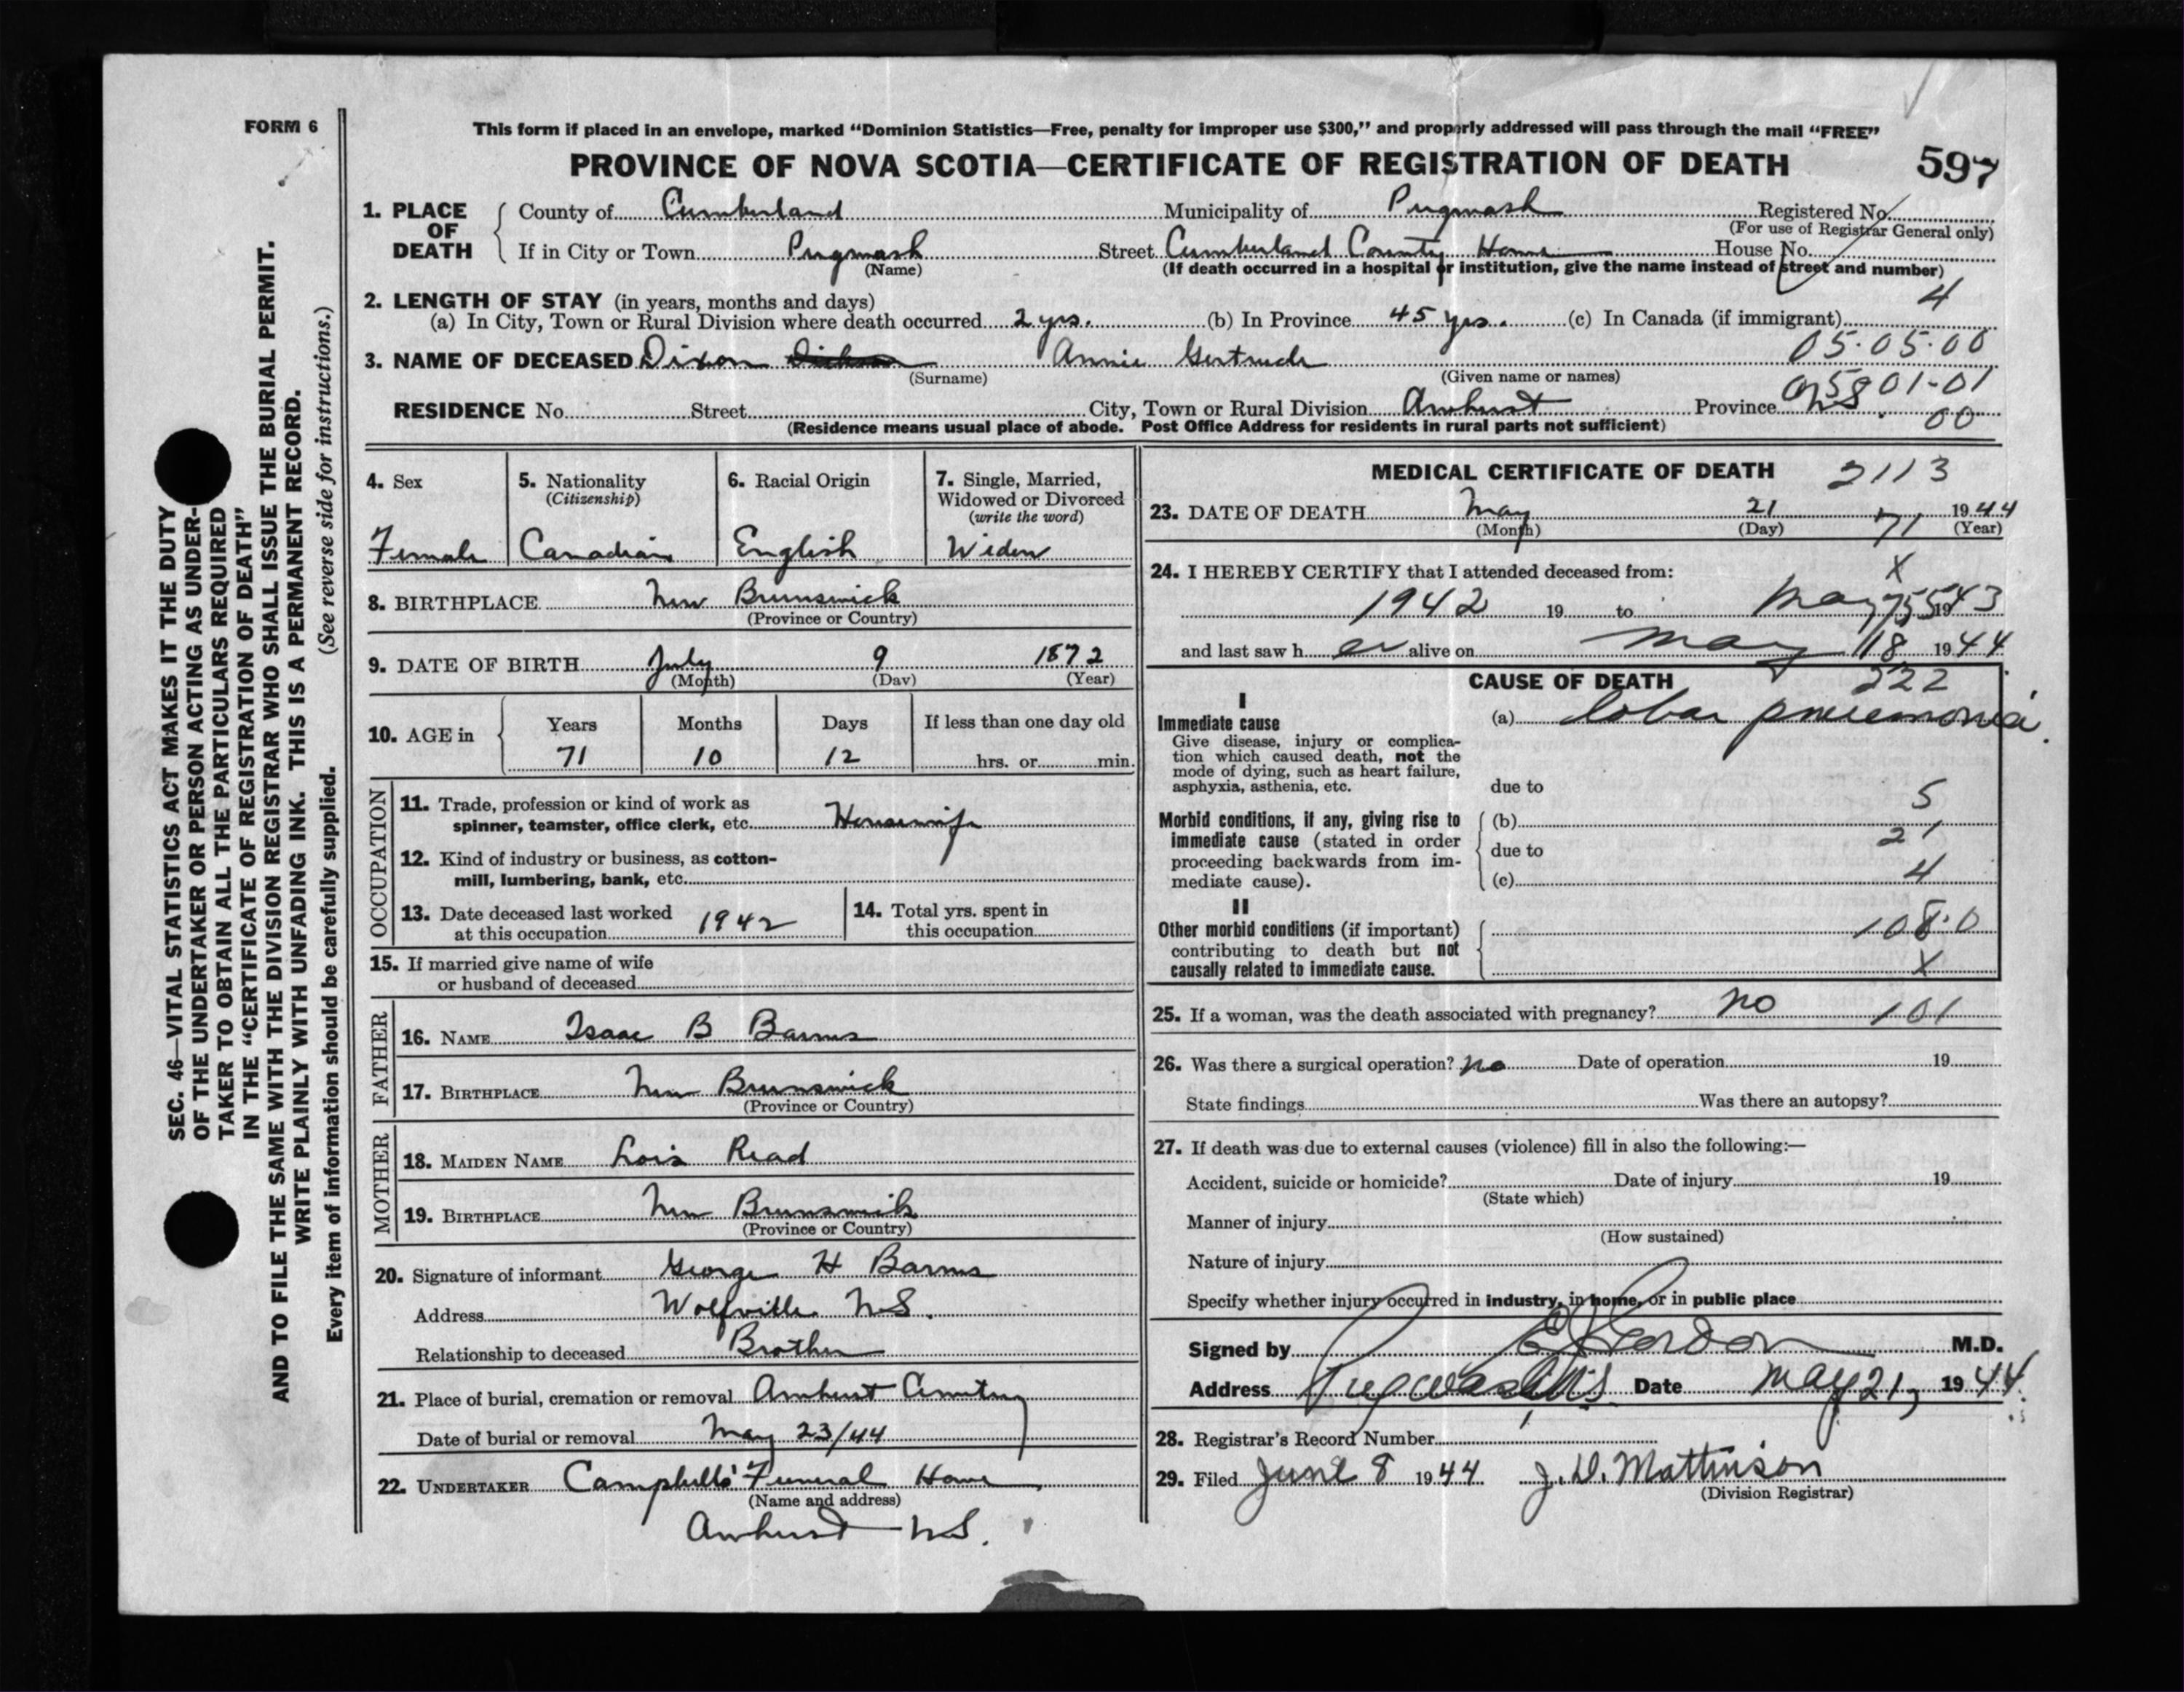 FORM 6
This form if placed in an envelope, marked "Dominion Statistics—Free, penalty for improper use $300," and properly addressed will pass through the mail "FREE"
PROVINCE OF NOVA SCOTIA—CERTIFICATE OF REGISTRATION OF DEATH 597
1. PLACE OF DEATH
County of Cumberland Municipality of Pugwash Registered No.
(For use of Registrar General only)
If in City or Town Pugwash Street Cumberland County Home House No.
(Name) (If death occurred in a hospital or institution, give the name instead of street and number)
2. LENGTH OF STAY (in years, months and days) 4
(a) In City, Town or Rural Division where death occurred 2 yrs. (b) In Province 45 yrs. (c) In Canada (if immigrant)
05·05·00
3. NAME OF DECEASED Dixon Annie Gertrude
(Surname) (Given name or names)
01-01
RESIDENCE No. Street City, Town or Rural Division Amherst Province NS.
00
(Residence means usual place of abode. Post Office Address for residents in rural parts not sufficient)
4. Sex
Female
5. Nationality
(Citizenship)
Canadian
6. Racial Origin
English
7. Single, Married,
Widowed or Divorced
(write the word)
Widow
8. BIRTHPLACE New Brunswick
(Province or Country)
9. DATE OF BIRTH July 9 1872
(Month) (Day) (Year)
10. AGE in
Years Months Days If less than one day old
71 10 12 hrs. or min.
OCCUPATION
11. Trade, profession or kind of work as
spinner, teamster, office clerk, etc. Housewife
12. Kind of industry or business, as cotton-
mill, lumbering, bank, etc.
13. Date deceased last worked
at this occupation 1942
14. Total yrs. spent in
this occupation
15. If married give name of wife
or husband of deceased
FATHER
16. NAME Isaac B Barnes
17. BIRTHPLACE New Brunswick
(Province or Country)
MOTHER
18. MAIDEN NAME Lois Read
19. BIRTHPLACE New Brunswick
(Province or Country)
20. Signature of informant George H Barnes
Address Wolfville N.S.
Relationship to deceased Brother
21. Place of burial, cremation or removal Amherst Cemetery
Date of burial or removal May 23/44
22. UNDERTAKER Campbells' Funeral Home
(Name and address)
Amherst N.S.
MEDICAL CERTIFICATE OF DEATH 2113
23. DATE OF DEATH May 21 1944
(Month) (Day) 71 (Year)
24. I HEREBY CERTIFY that I attended deceased from: X
1942 19 to May 19 43
and last saw her alive on May 18 1944
CAUSE OF DEATH 222
I
Immediate cause
Give disease, injury or complica-
tion which caused death, not the
mode of dying, such as heart failure,
asphyxia, asthenia, etc.
(a) lobar pneumonia.
due to
5
Morbid conditions, if any, giving rise to
immediate cause (stated in order
proceeding backwards from im-
mediate cause).
(b)
21
due to
(c) 4
II
Other morbid conditions (if important)
contributing to death but not
causally related to immediate cause.
108·0
X
25. If a woman, was the death associated with pregnancy? no 101
26. Was there a surgical operation? no Date of operation 19
State findings Was there an autopsy?
27. If death was due to external causes (violence) fill in also the following:—
Accident, suicide or homicide? Date of injury 19
(State which)
Manner of injury
(How sustained)
Nature of injury
Specify whether injury occurred in industry, in home, or in public place
Signed by Gordon M.D.
Address Pugwash N.S. Date May 21, 1944.
28. Registrar's Record Number
29. Filed June 8 1944 J. D. Mattinson
(Division Registrar)
SEC. 46—VITAL STATISTICS ACT MAKES IT THE DUTY
OF THE UNDERTAKER OR PERSON ACTING AS UNDER-
TAKER TO OBTAIN ALL THE PARTICULARS REQUIRED
IN THE "CERTIFICATE OF REGISTRATION OF DEATH"
AND TO FILE THE SAME WITH THE DIVISION REGISTRAR WHO SHALL ISSUE THE BURIAL PERMIT.
WRITE PLAINLY WITH UNFADING INK. THIS IS A PERMANENT RECORD.
Every item of information should be carefully supplied. (See reverse side for instructions.)